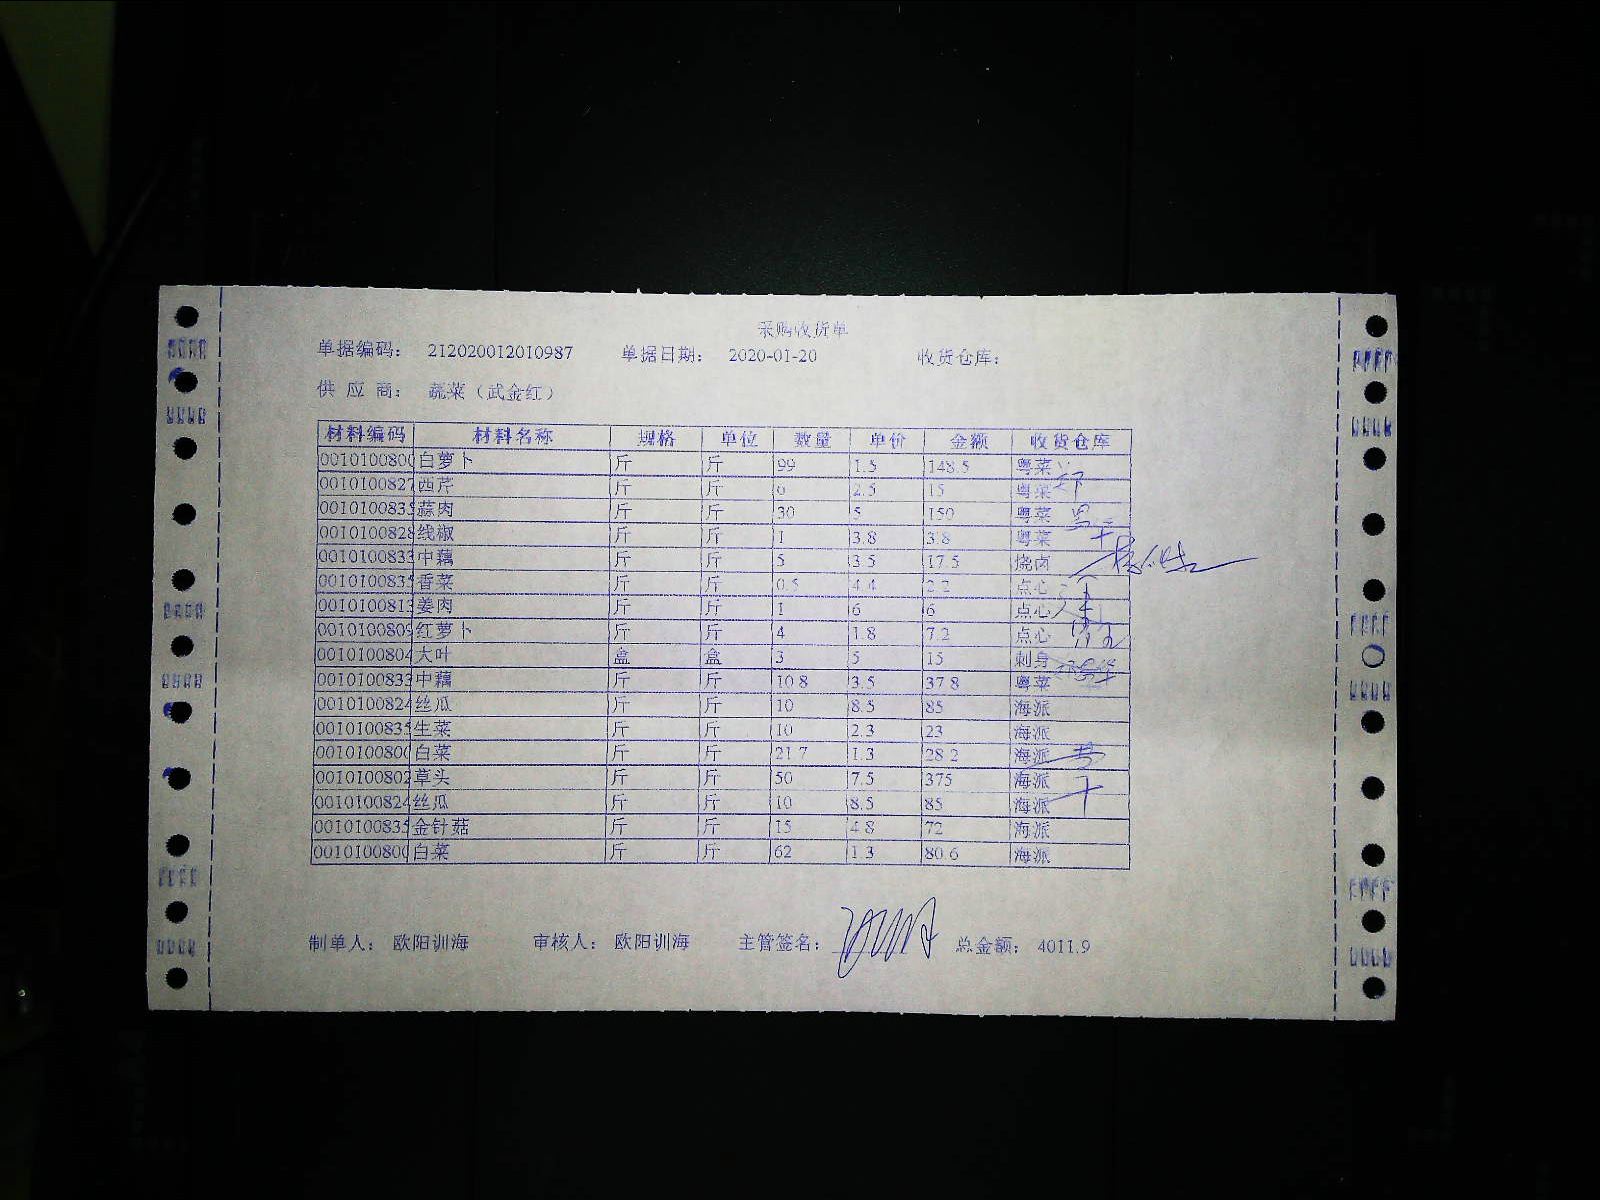 采购收货单
单据编码： 212020012010987 单据日期： 2020-01-20 收货仓库：
供 应 商： 蔬菜（武金红）
材料编码 材料名称 规格 单位 数量 单价 金额 收货仓库
0010100800 白萝卜 斤 斤 99 1.5 148.5 粤菜
0010100827 西芹 斤 斤 6 2.5 15 粤菜
0010100835 蒜肉 斤 斤 30 5 150 粤菜
0010100828 线椒 斤 斤 1 3.8 3.8 粤菜
0010100833 中藕 斤 斤 5 3.5 17.5 烧卤
0010100835 香菜 斤 斤 0.5 4.4 2.2 点心
0010100813 姜肉 斤 斤 1 6 6 点心
0010100809 红萝卜 斤 斤 4 1.8 7.2 点心
0010100804 大叶 盒 盒 3 5 15 刺身
0010100833 中藕 斤 斤 10.8 3.5 37.8 粤菜
0010100824 丝瓜 斤 斤 10 8.5 85 海派
0010100835 生菜 斤 斤 10 2.3 23 海派
0010100800 白菜 斤 斤 21.7 1.3 28.2 海派
0010100802 草头 斤 斤 50 7.5 375 海派
0010100824 丝瓜 斤 斤 10 8.5 85 海派
0010100835 金针菇 斤 斤 15 4.8 72 海派
0010100800 白菜 斤 斤 62 1.3 80.6 海派
制单人： 欧阳训海 审核人： 欧阳训海 主管签名： 总金额： 4011.9